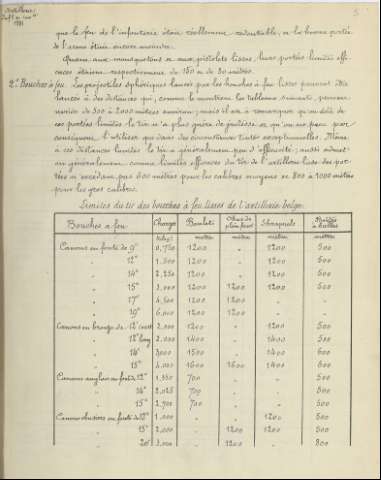 Artillerie
1881
5
que le feu de l'infanterie était réellement redoutable, si la bonne portée
de l'arme était encore moindre.
Quant aux mousquetons et aux pistolets lisses leurs portées limites effi-
caces étaient respectivement de 150 m de 30 mètres.
2° Bouches à feu. Les projectiles sphériques lancés par les bouches à feu lisses peuvent être
lancés à des distances qui, comme le montrera le tableau suivant, peuvent
varier de 500 à 2000 mètres environ; mais il est à remarquer qu'au delà de
ces portées limites le tir n'a plus guère de justesse et qu'on ne peut par
conséquent l'utiliser que dans des circonstances toutes exceptionnelles. Même
à ces distances limites le tir a généralement peu d'efficacité; aussi admet-
on généralement comme limites efficaces du tir de l'artillerie lisse des por-
tées n'excédant pas 600 mètres pour les calibres moyens et 800 à 1000 mètres
pour les gros calibres.
Limites du tir des bouches à feu lisses de l'artillerie belge.
Bouches à feu Charge Boulets Obus de plein fouet Shrapnels Boîtes à balles
kilog. mètres mètres mètres mètres
Canons en fonte de 9° 0,750 1200 " 1200 500
" 12° 1,500 1200 " 1200 600
" 14° 2,250 1200 " 1200 600
" 15° 3,000 1200 1200 1200 500
" 17° 4,500 1200 1200 "
" 19° 6,000 1200 1200 "
Canons en bronze de 12° court 2,000 1200 " 1200 500
" 12° long 2,000 1400 " 1400 500
" 14° 3,000 1500 " 1400 600
" 15° 4,000 1600 1600 1400 600
Canons anglais en fonte de 12° 1,350 700 " " 500
" 14° 2,025 700 " " 600
" 15° 2,700 700 " " 500
Canons obusiers en fonte de 12° 1,000 " " 1200 500
" 15° 2,000 " 1200 1200 500
" 20° 3,000 " 1200 " 800